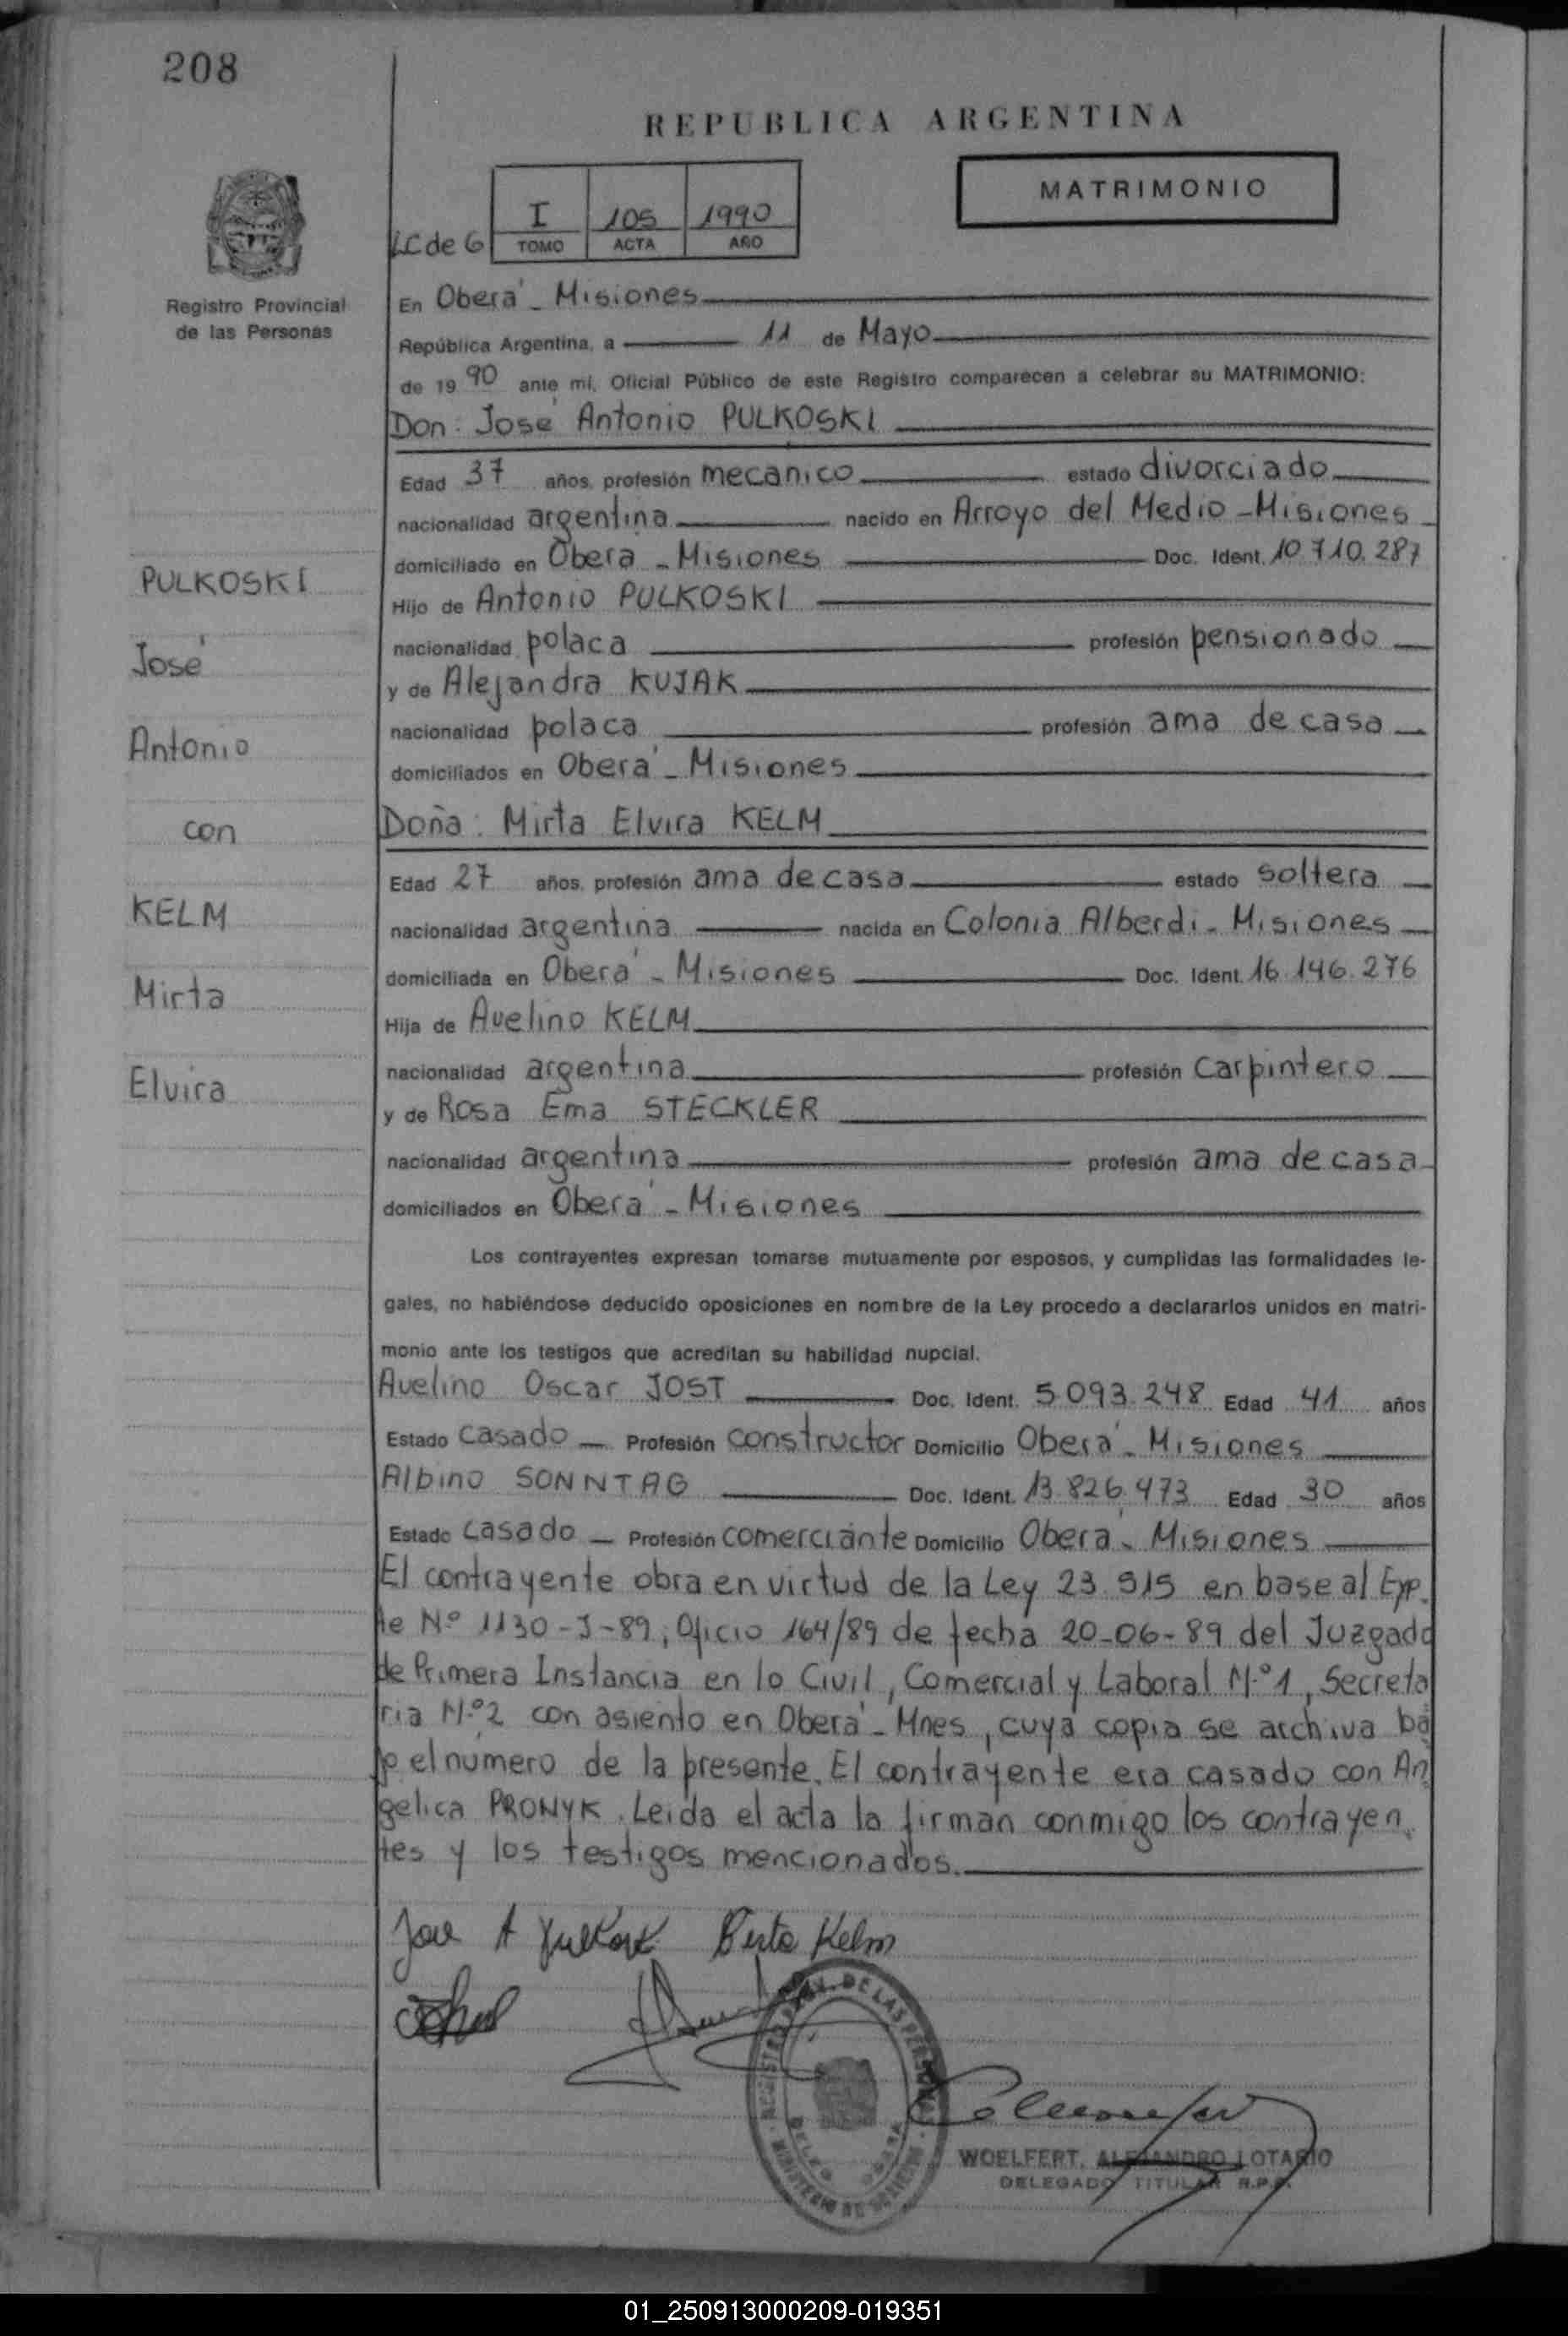 208
REPUBLICA ARGENTINA
MATRIMONIO
I 105 1990
LC de G TOMO ACTA AÑO
Registro Provincial
de las Personas
En Oberá - Misiones
República Argentina, a 11 de Mayo
de 1990 ante mí, Oficial Público de este Registro comparecen a celebrar su MATRIMONIO:
Don: José Antonio PULKOSKI
Edad 37 años, profesión mecanico estado divorciado
nacionalidad argentina nacido en Arroyo del Medio - Misiones
domiciliado en Oberá - Misiones Doc. Ident. 10.710.287
Hijo de Antonio PULKOSKI
nacionalidad polaca profesión pensionado
y de Alejandra KUJAK
nacionalidad polaca profesión ama de casa
domiciliados en Oberá - Misiones
Doña: Mirta Elvira KELM
Edad 27 años, profesión ama de casa estado soltera
nacionalidad argentina nacida en Colonia Alberdi - Misiones
domiciliada en Oberá - Misiones Doc. Ident. 16.146.276
Hija de Avelino KELM
nacionalidad argentina profesión carpintero
y de Rosa Ema STECKLER
nacionalidad argentina profesión ama de casa
domiciliados en Oberá - Misiones
PULKOSKI
José
Antonio
con
KELM
Mirta
Elvira
Los contrayentes expresan tomarse mutuamente por esposos, y cumplidas las formalidades le-
gales, no habiéndose deducido oposiciones en nombre de la Ley procedo a declararlos unidos en matri-
monio ante los testigos que acreditan su habilidad nupcial.
Avelino Oscar JOST Doc. Ident. 5.093.248 Edad 41 años
Estado casado Profesión constructor Domicilio Oberá - Misiones
Albino SONNTAG Doc. Ident. 13.826.473 Edad 30 años
Estado casado Profesión comerciante Domicilio Oberá - Misiones
El contrayente obra en virtud de la Ley 23.515 en base al Exp.
te Nº 1130-J-89, Oficio 164/89 de fecha 20-06-89 del Juzgado
de Primera Instancia en lo Civil, Comercial y Laboral Nº 1, Secreta
ria Nº 2 con asiento en Oberá - Mnes, cuya copia se archiva ba
jo el número de la presente. El contrayente era casado con An
gelica PRONYK. Leida el acta la firman conmigo los contrayen
tes y los testigos mencionados.
Jose A Pulkoski Kelm
WOELFERT, ALEJANDRO LOTARIO
DELEGADO TITULAR R.P.P.
01_250913000209-019351